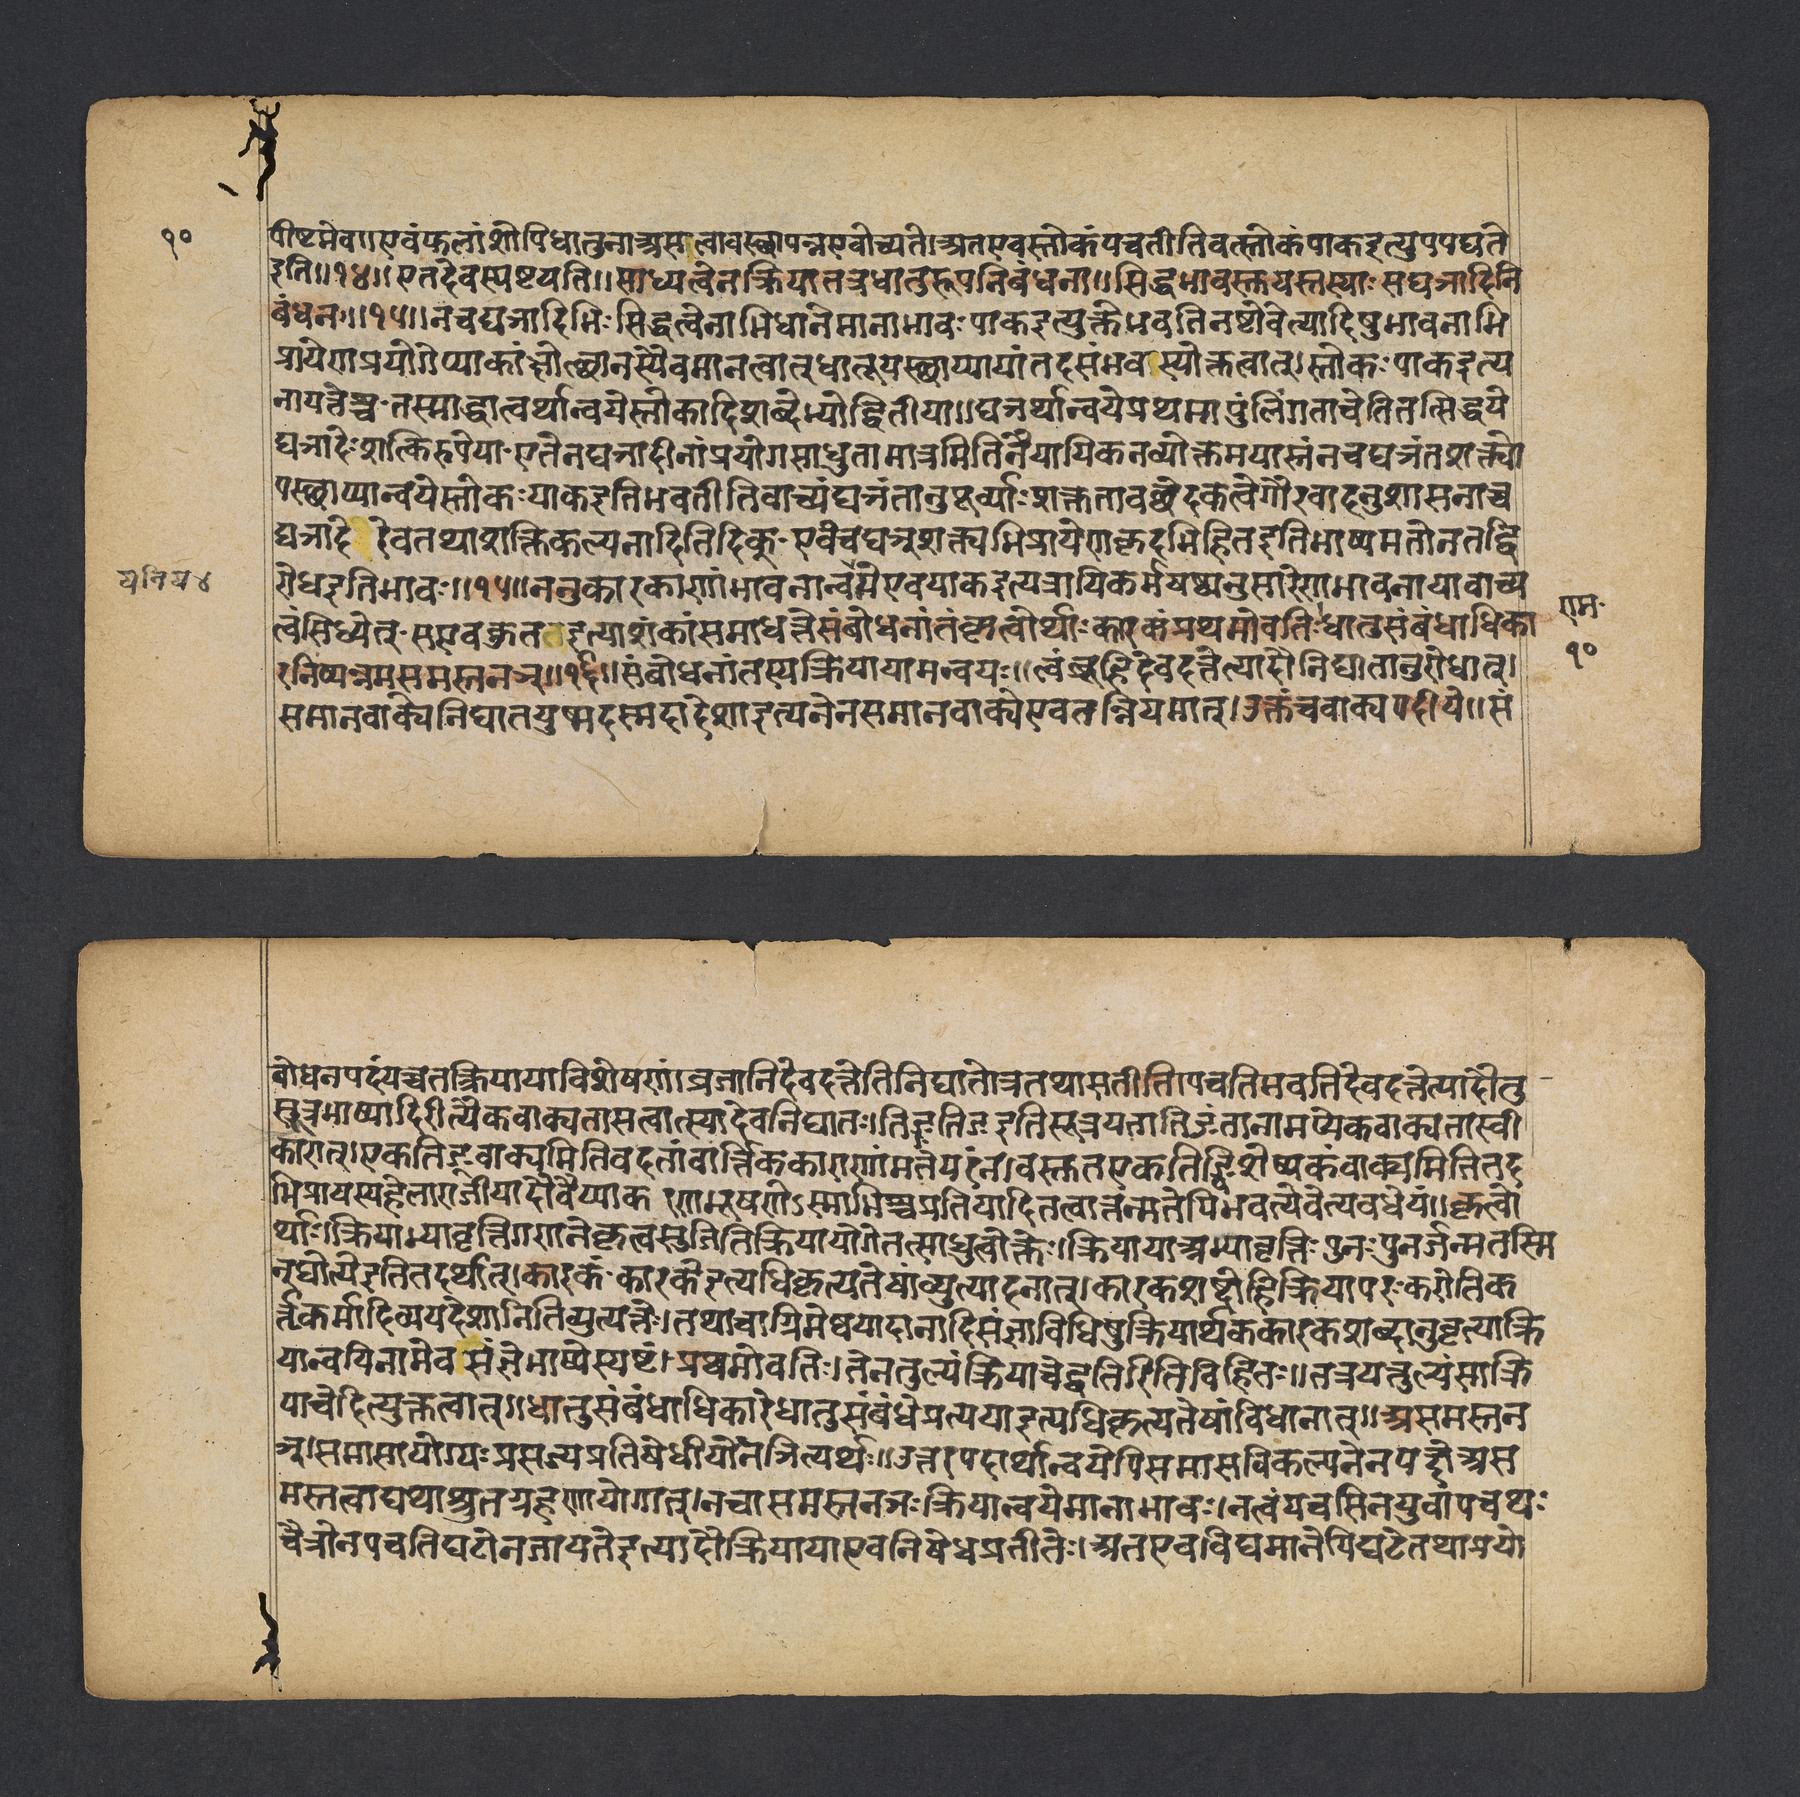 १०
पीष्टमेव।।एवंफलांशोपिधातुनाअसत्वावस्थापन्नएवोच्यते।अतएवस्तोकंपचतीतिवत्स्तोकंपाकइत्युपपद्यते
इति।।१४।।एतदेवस्पष्टयति।।साध्यत्वेनक्रियातत्रधातुरूपनिबंधना।।सिद्धभावस्तुयस्तस्याःसघञादिनि
बंधनः।।१५।।नचघञादिभिःसिद्धत्वेनाभिधानेमानाभावःपाकइत्युक्तेभवतिनष्टोवेत्यादिषुभावनाभि
प्रायेणप्रयोगेप्याकांक्षोत्थानस्यैवमानत्वात्धातूपस्थाप्यायांतदसंभवस्योक्तत्वात्।स्तोकःपाकइत्य
नापत्तेश्चतस्माद्धात्वर्थान्वयेस्तोकादिशब्देभ्योद्वितीया।।घञर्थान्वयेप्रथमापुंलिंगताचेतितत्सिद्धये
घञादेःशक्तिरुपेयाएतेनघञादीनांप्रयोगसाधुतामात्रमितिनैयायिकनव्योक्तमपास्तंनचघञंतशक्त्यो
पस्थाप्यान्वयेस्तोकःपाकइतिभवतीतिवाच्यंघञंतानुपूर्व्याःशक्ततावछेदकत्वेगौरवादनुशासनाच्च
घञादेरेवतथाशक्तिकल्पनादितिदिक्एवंचघञ्शक्त्यभिप्रायेणकृदभिहितइतिभाष्यमतोनतद्वि
रोधइतिभावः।।१५।।ननुकारकाणांभावनान्वयेएवपाकइत्यत्रापिकर्मषष्ठ्यनुसारेणभावनायावाच्य
त्वंसिध्येत्सएवकुतइत्याशंकांसमाधत्तेसंबोधनांतंकृत्वोर्थाःकारकंप्रथमोवतिःधातुसंबंधाधिका
रनिष्पन्नमसमस्तनञ्।।१६।।संबोधनांतस्यक्रियायामन्वयः।।त्वंब्रूहिदेवदत्तेत्यादौनिघातानुरोधात्।
समानवाक्येनिघातयुष्मदस्मदादेशाइत्यनेनसमानवाक्येएवतन्नियमात्।उक्तंचवाक्यपदीये।।सं
राम
१०
बोधनपदंयच्चतत्क्रियायाविशेषणं।व्रजानिदेवदत्तेतिनिघातोत्रतथासतीति।पचतिभवतिदेवदत्तेत्यादौतु
सूत्रभाष्यादिरीत्यैकवाक्यतासत्वात्स्यादेवनिघातः।तिङ्ङतिङइतिसूत्रयतातिङंतानामप्येकवाक्यतास्वी
कारात्।एकतिङ्वाक्यमितिवदतांवार्त्तिककाराणांमतेपरंन।वस्तुतएकतिङ्विशेष्यकंवाक्यमितितद
भिप्रायस्यहेलाराजीयादौवैयाकरणभूषणेऽस्माभिश्चप्रतिपादितत्वात्तन्मतेपिभवत्येवेत्यवधेयं।।कृत्वो
र्थाः।क्रियाभ्यावृत्तिगणनेकृत्वसुजितिक्रियायोगेतत्साधुत्वोक्तेः।क्रियायाअभ्यावृत्तिःपुनःपुनर्जन्मतस्मि
न्द्योत्येइतितदर्थात्।कारकंकारकेइत्यधिकृत्यतेषांव्युत्पादनात्।कारकशब्दोहिक्रियापरःकरोतिक
र्त्तृकर्मादिव्यपदेशानितिव्युत्पत्तेः।तथाचाग्रिमेष्वपादानादिसंज्ञाविधिषुक्रियार्थककारकशब्दानुवृत्याक्रि
यान्वयिनामेवसंज्ञेभाष्येस्पष्टं।प्रथमोवतिः।तेनतुल्यंक्रियाचेद्वतिरितिविहितः।।तत्रयत्तुल्यंसाक्रि
याचेदित्युक्तत्वात्।।धातुसंबंधाधिकारेधातुसंबंधेप्रत्ययाइत्यधिकृत्यतेषांविधानात्।।असमस्तन
ञ्।समासायोग्यःप्रसज्यप्रतिषेधीयोनञित्यर्थः।।उत्तरपदार्थान्वयेपिसमासविकल्पनेनपक्षेअस
मस्तत्वाद्यथाश्रुतग्रहणायोगात्।नचासमस्तनञःक्रियान्वयेमानाभावः।नत्वंपचसिनयुवांपचथः
चैत्रोनपचतिघटोनजायतेइत्यादौक्रियायाएवनिषेधप्रतीतेः।अतएवविद्यमानेपिघटेतथाप्रयो